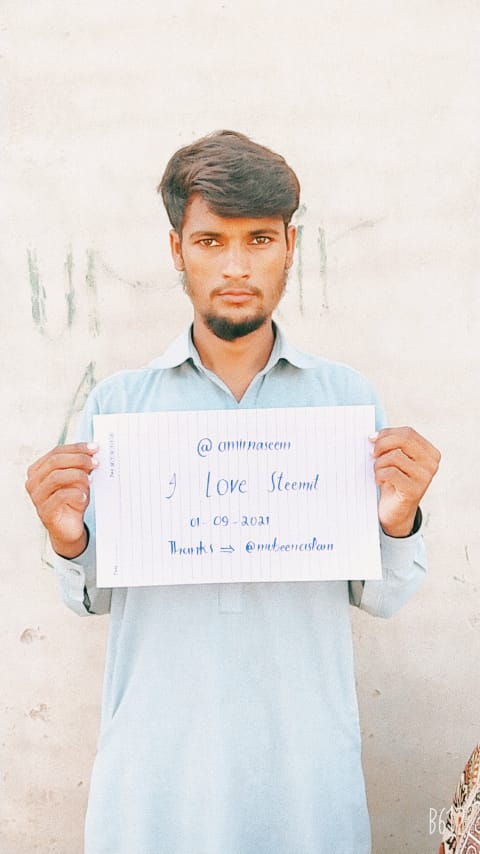 @ amirnaseem
I Love Steemit
01-09-2021
Thanks ⇒ @mubeenaslam
B612